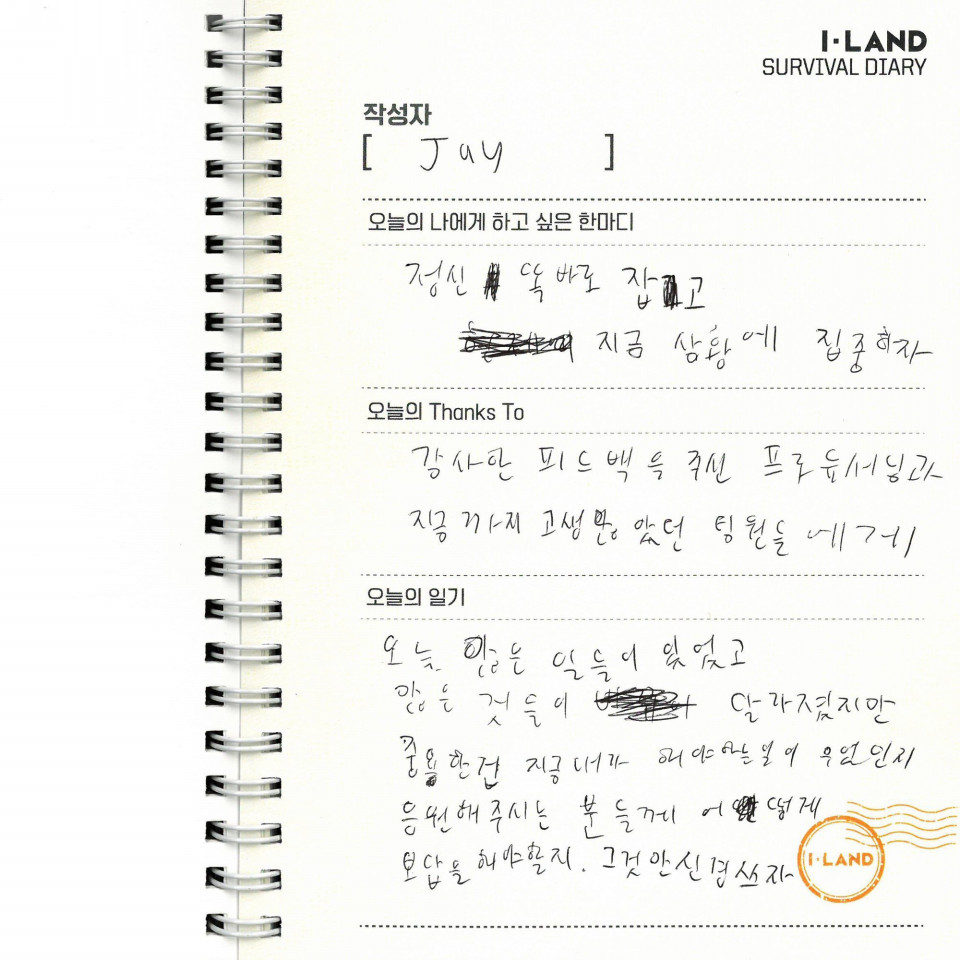 I·LAND
SURVIVAL DIARY
작성자
[ Jay ]
오늘의 나에게 하고 싶은 한마디
정신 똑바로 잡고
지금 상황에 집중하자
오늘의 Thanks To
감사한 피드백을 주신 프로듀서님과
지금까지 고생많았던 팀원들에게
오늘의 일기
오늘 많은 일들이 있었고
많은 것들이 달라졌지만
중요한건 지금 내가 해야하는일이 무엇인지
응원해주시는 분들께 어떻게
보답을 해야할지. 그것만신경쓰자
I·LAND